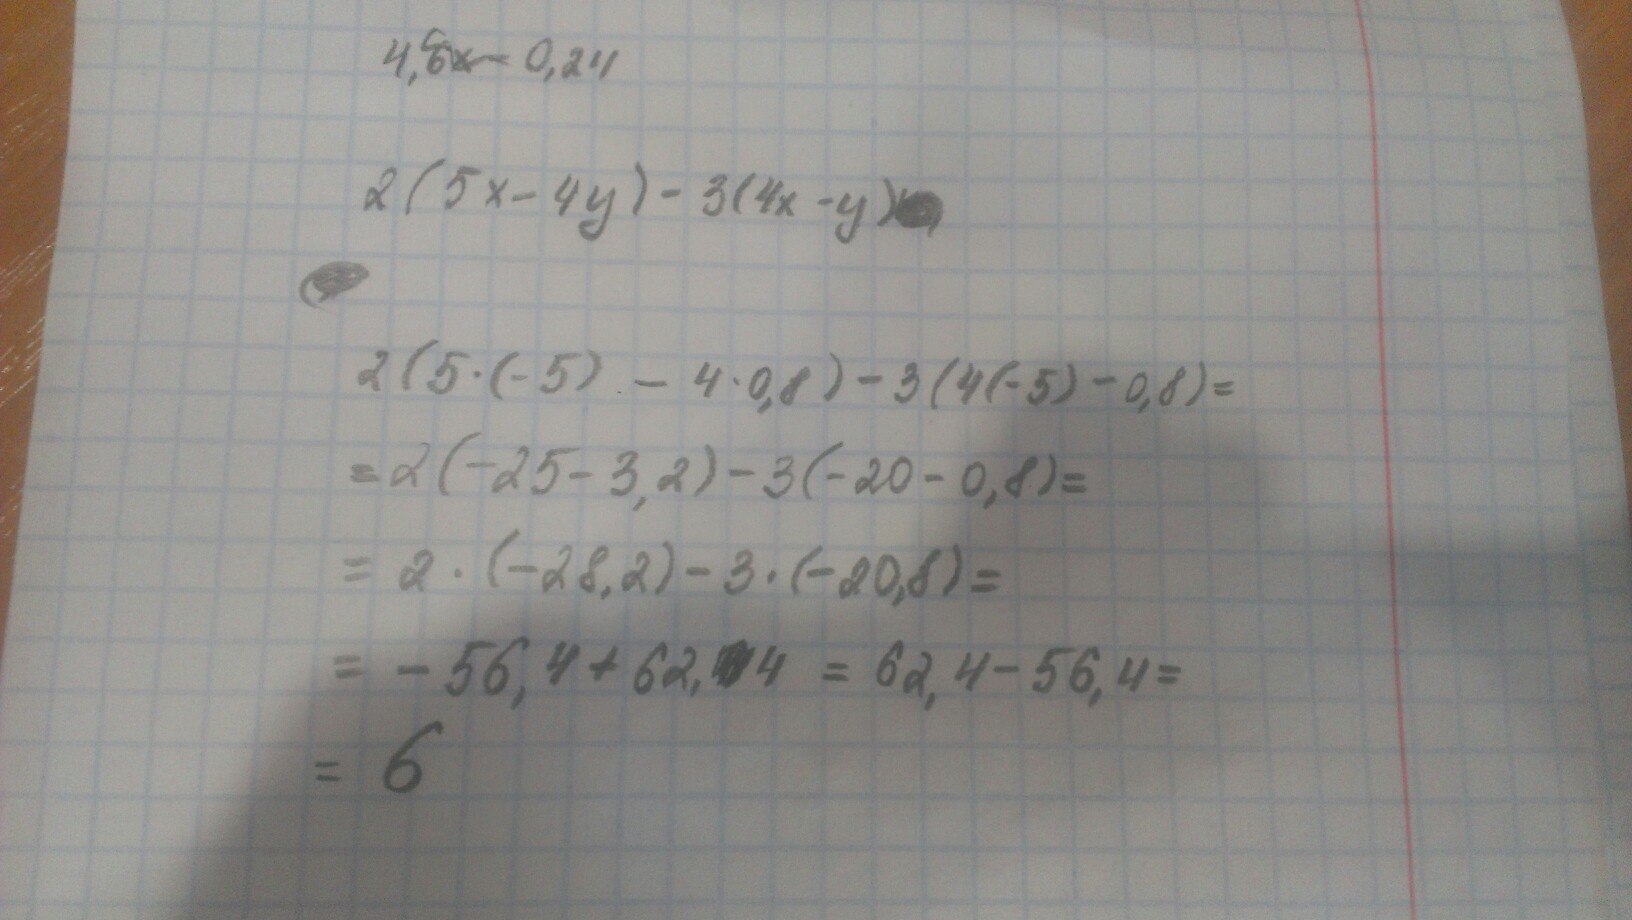 4,8x - 0,24
2(5x-4y)-3(4x-y)
2(5·(-5) - 4·0,8)-3(4(-5)-0,8)=
=2(-25-3,2)-3(-20-0,8)=
= 2·(-28,2)-3·(-20,8)=
= -56,4+62,4 = 62,4-56,4=
= 6